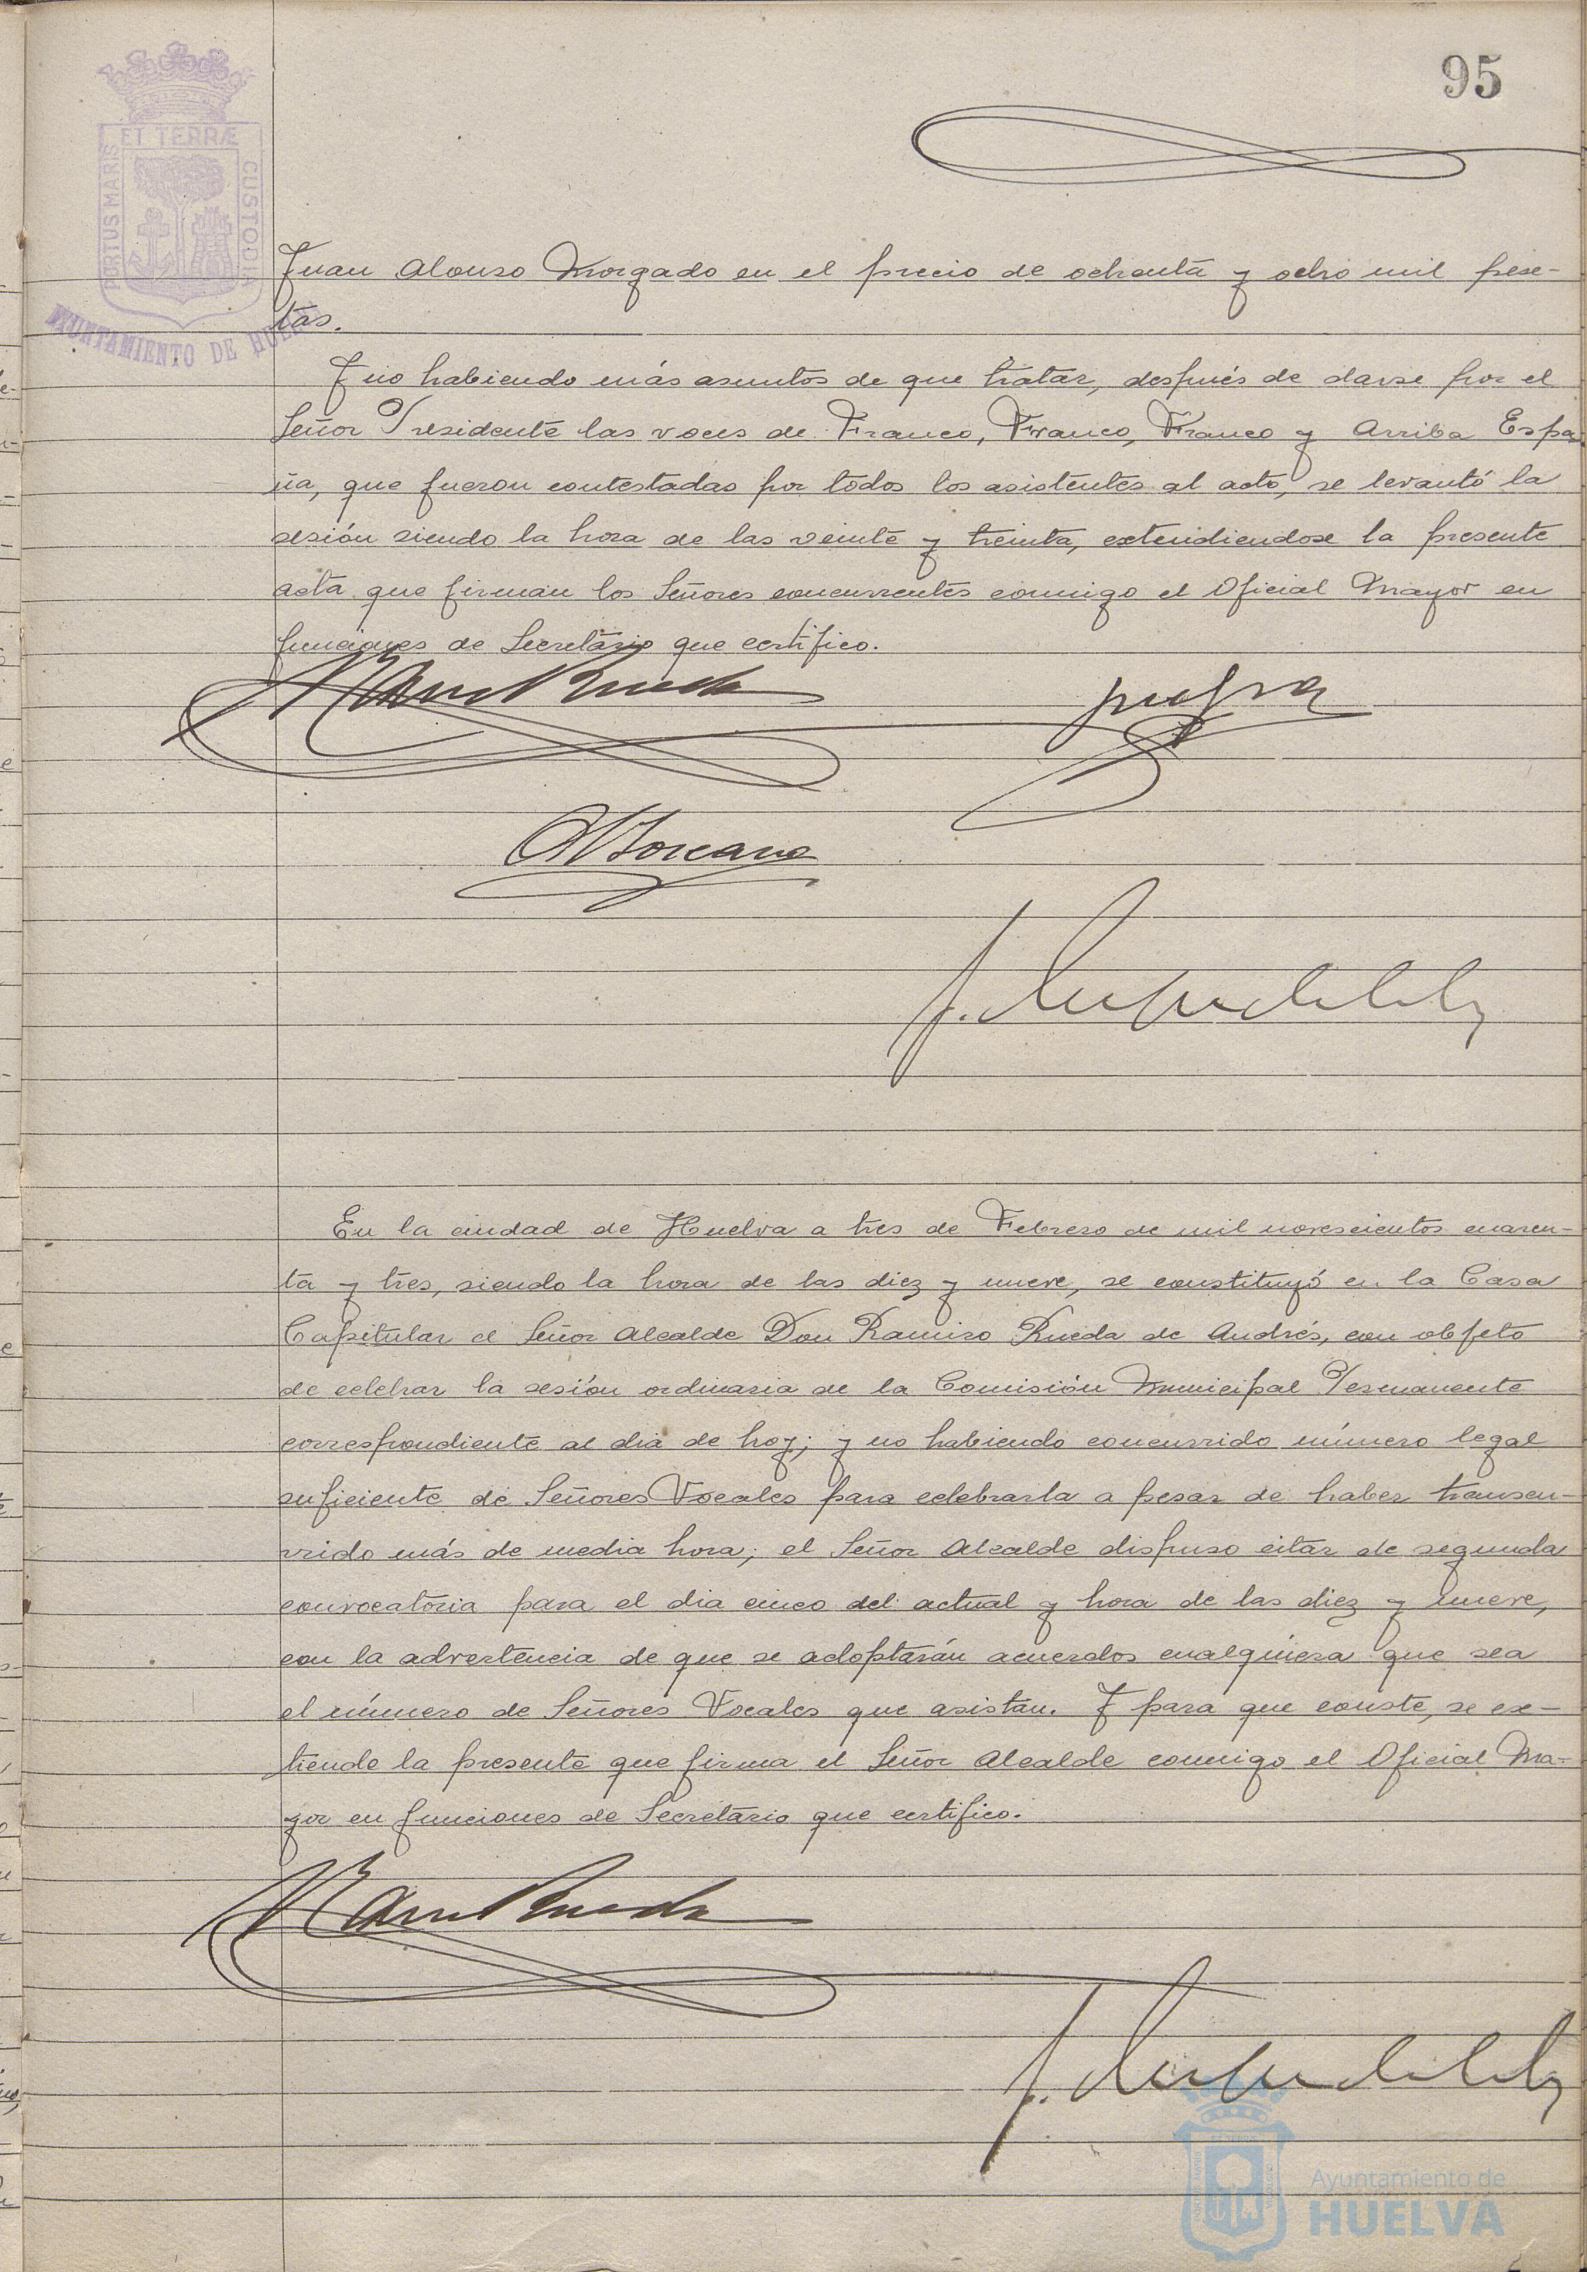 95
PORTUS MARIS ET TERRÆ CUSTODIA
AYUNTAMIENTO DE HUELVA
Juan Alonso Morgado en el precio de ochenta y ocho mil pese-
tas.
Y no habiendo más asuntos de que tratar, después de darse por el
Señor Presidente las voces de Franco, Franco, Franco y Arriba Espa
ña, que fueron contestadas por todos los asistentes al acto, se levantó la
sesión siendo la hora de las veinte y treinta, extendiendose la presente
acta que firman los Señores concurrentes conmigo el Oficial Mayor en
funciones de Secretario que certifico.
En la ciudad de Huelva a tres de Febrero de mil novescientos cuaren-
ta y tres, siendo la hora de las diez y nueve, se constituyó en la Casa
Capitular el Señor Alcalde Don Ramiro Rueda de Andrés, con objeto
de celebrar la sesión ordinaria de la Comisión Municipal Permanente
correspondiente al dia de hoy; y no habiendo concurrido número legal
suficiente de Señores Vocales para celebrarla a pesar de haber transcu-
rrido más de media hora; el Señor Alcalde dispuso citar de segunda
convocatoria para el dia cinco del actual y hora de las diez y nueve,
con la advertencia de que se adoptarán acuerdos cualquiera que sea
el número de Señores Vocales que asistan. Y para que conste, se ex-
tiende la presente que firma el Señor Alcalde conmigo el Oficial Ma-
yor en funciones de Secretario que certifico.
Ayuntamiento de
HUELVA